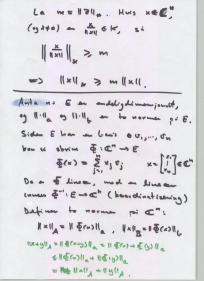 La m = ‖z‖_*. Hvis x ∈ ℂⁿ,
(og x ≠ 0) x/‖x‖ ∈ K, så
‖ x/‖x‖ ‖_* ≥ m
⟹ ‖x‖_* ≥ m ‖x‖.
Anta nå E en endeligdimensjonalt,
og ‖·‖_a og ‖·‖_b er to normer på E.
Siden E har en basis v₁, …, vₙ
kan vi skrive Φ: ℂⁿ → E
Φ(x) = Σ_{j=1}^n x_j v_j   x = [x₁ ⋮ xₙ] ∈ ℂⁿ
Da er Φ lineær, med en lineær
invers Φ⁻¹: E → ℂⁿ
Definer to normer på ℂⁿ:
‖x‖_A = ‖Φ(x)‖_a, ‖x‖_B = ‖Φ(x)‖_b
‖x+y‖_A = ‖Φ(x+y)‖_a = ‖Φ(x) + Φ(y)‖_a
≤ ‖Φ(x)‖_a + ‖Φ(y)‖_a
= ‖x‖_A + ‖y‖_A.